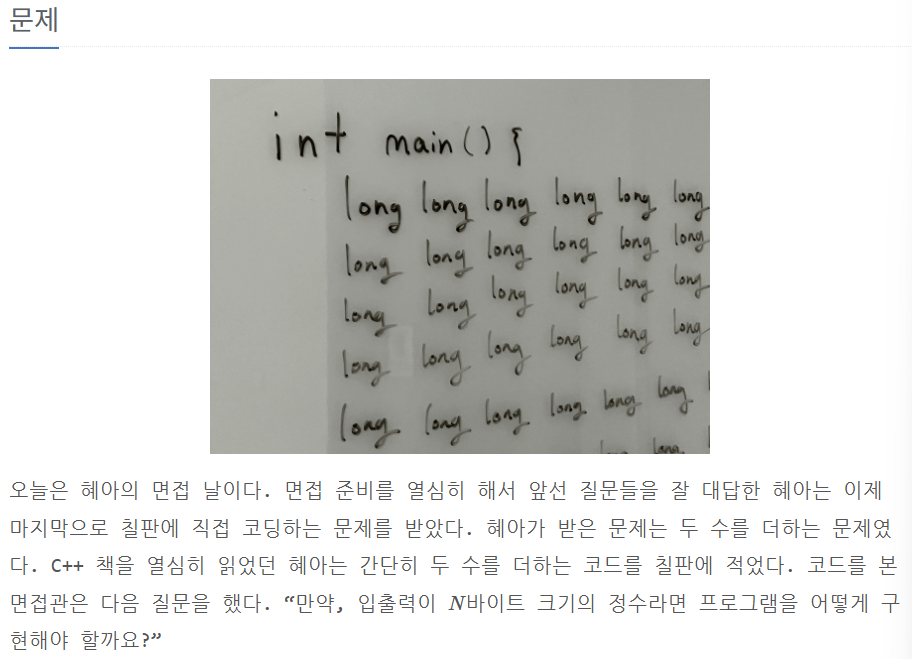 문제
int main() {
long long long long long long
long long long long long long
long long long long long long
long long long long long long
long long long long long long
long long
오늘은 혜아의 면접 날이다. 면접 준비를 열심히 해서 앞선 질문들을 잘 대답한 혜아는 이제
마지막으로 칠판에 직접 코딩하는 문제를 받았다. 혜아가 받은 문제는 두 수를 더하는 문제였
다. C++ 책을 열심히 읽었던 혜아는 간단히 두 수를 더하는 코드를 칠판에 적었다. 코드를 본
면접관은 다음 질문을 했다. “만약, 입출력이 N바이트 크기의 정수라면 프로그램을 어떻게 구
현해야 할까요?”